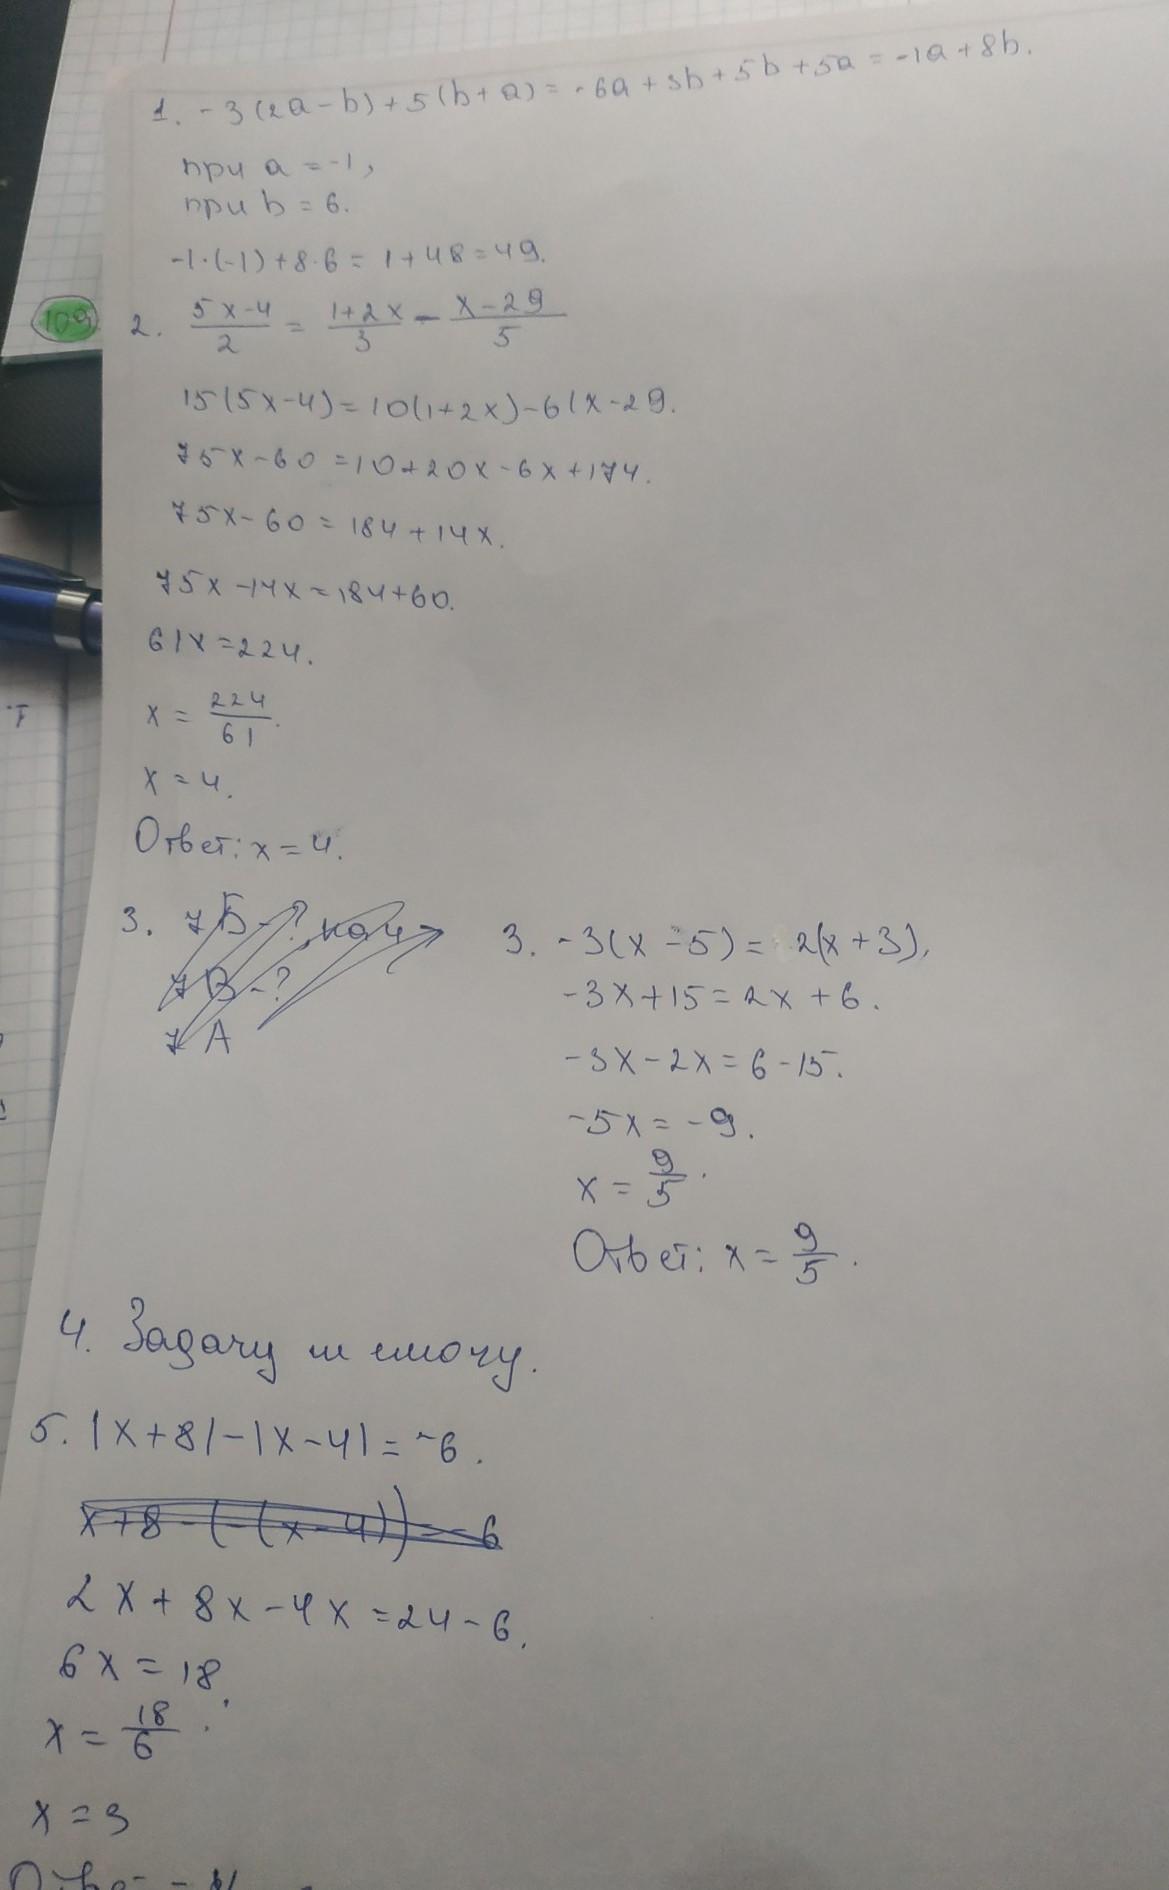 1. -3(2a-b)+5(b+a)=-6a+3b+5b+5a=-1a+8b.
при a=-1,
при b=6.
-1·(-1)+8·6=1+48=49.
109
2. 5x-4/2 = 1+2x/3 - x-29/5
15(5x-4)=10(1+2x)-6(x-29.
75x-60=10+20x-6x+174.
75x-60=184+14x.
75x-14x=184+60.
61x=224.
x=224/61.
x=4.
Ответ: x=4.
3. 7Б-?, на 4
7В-?
7А
3. -3(x-5)=2(x+3),
-3x+15=2x+6.
-3x-2x=6-15.
-5x=-9.
x=9/5.
Ответ: x=9/5.
4. Задачу не смогу.
5. |x+8|-|x-4|=-6.
x+8-(-(x-4))=-6
2x+8x-4x=24-6.
6x=18.
x=18/6.
x=3